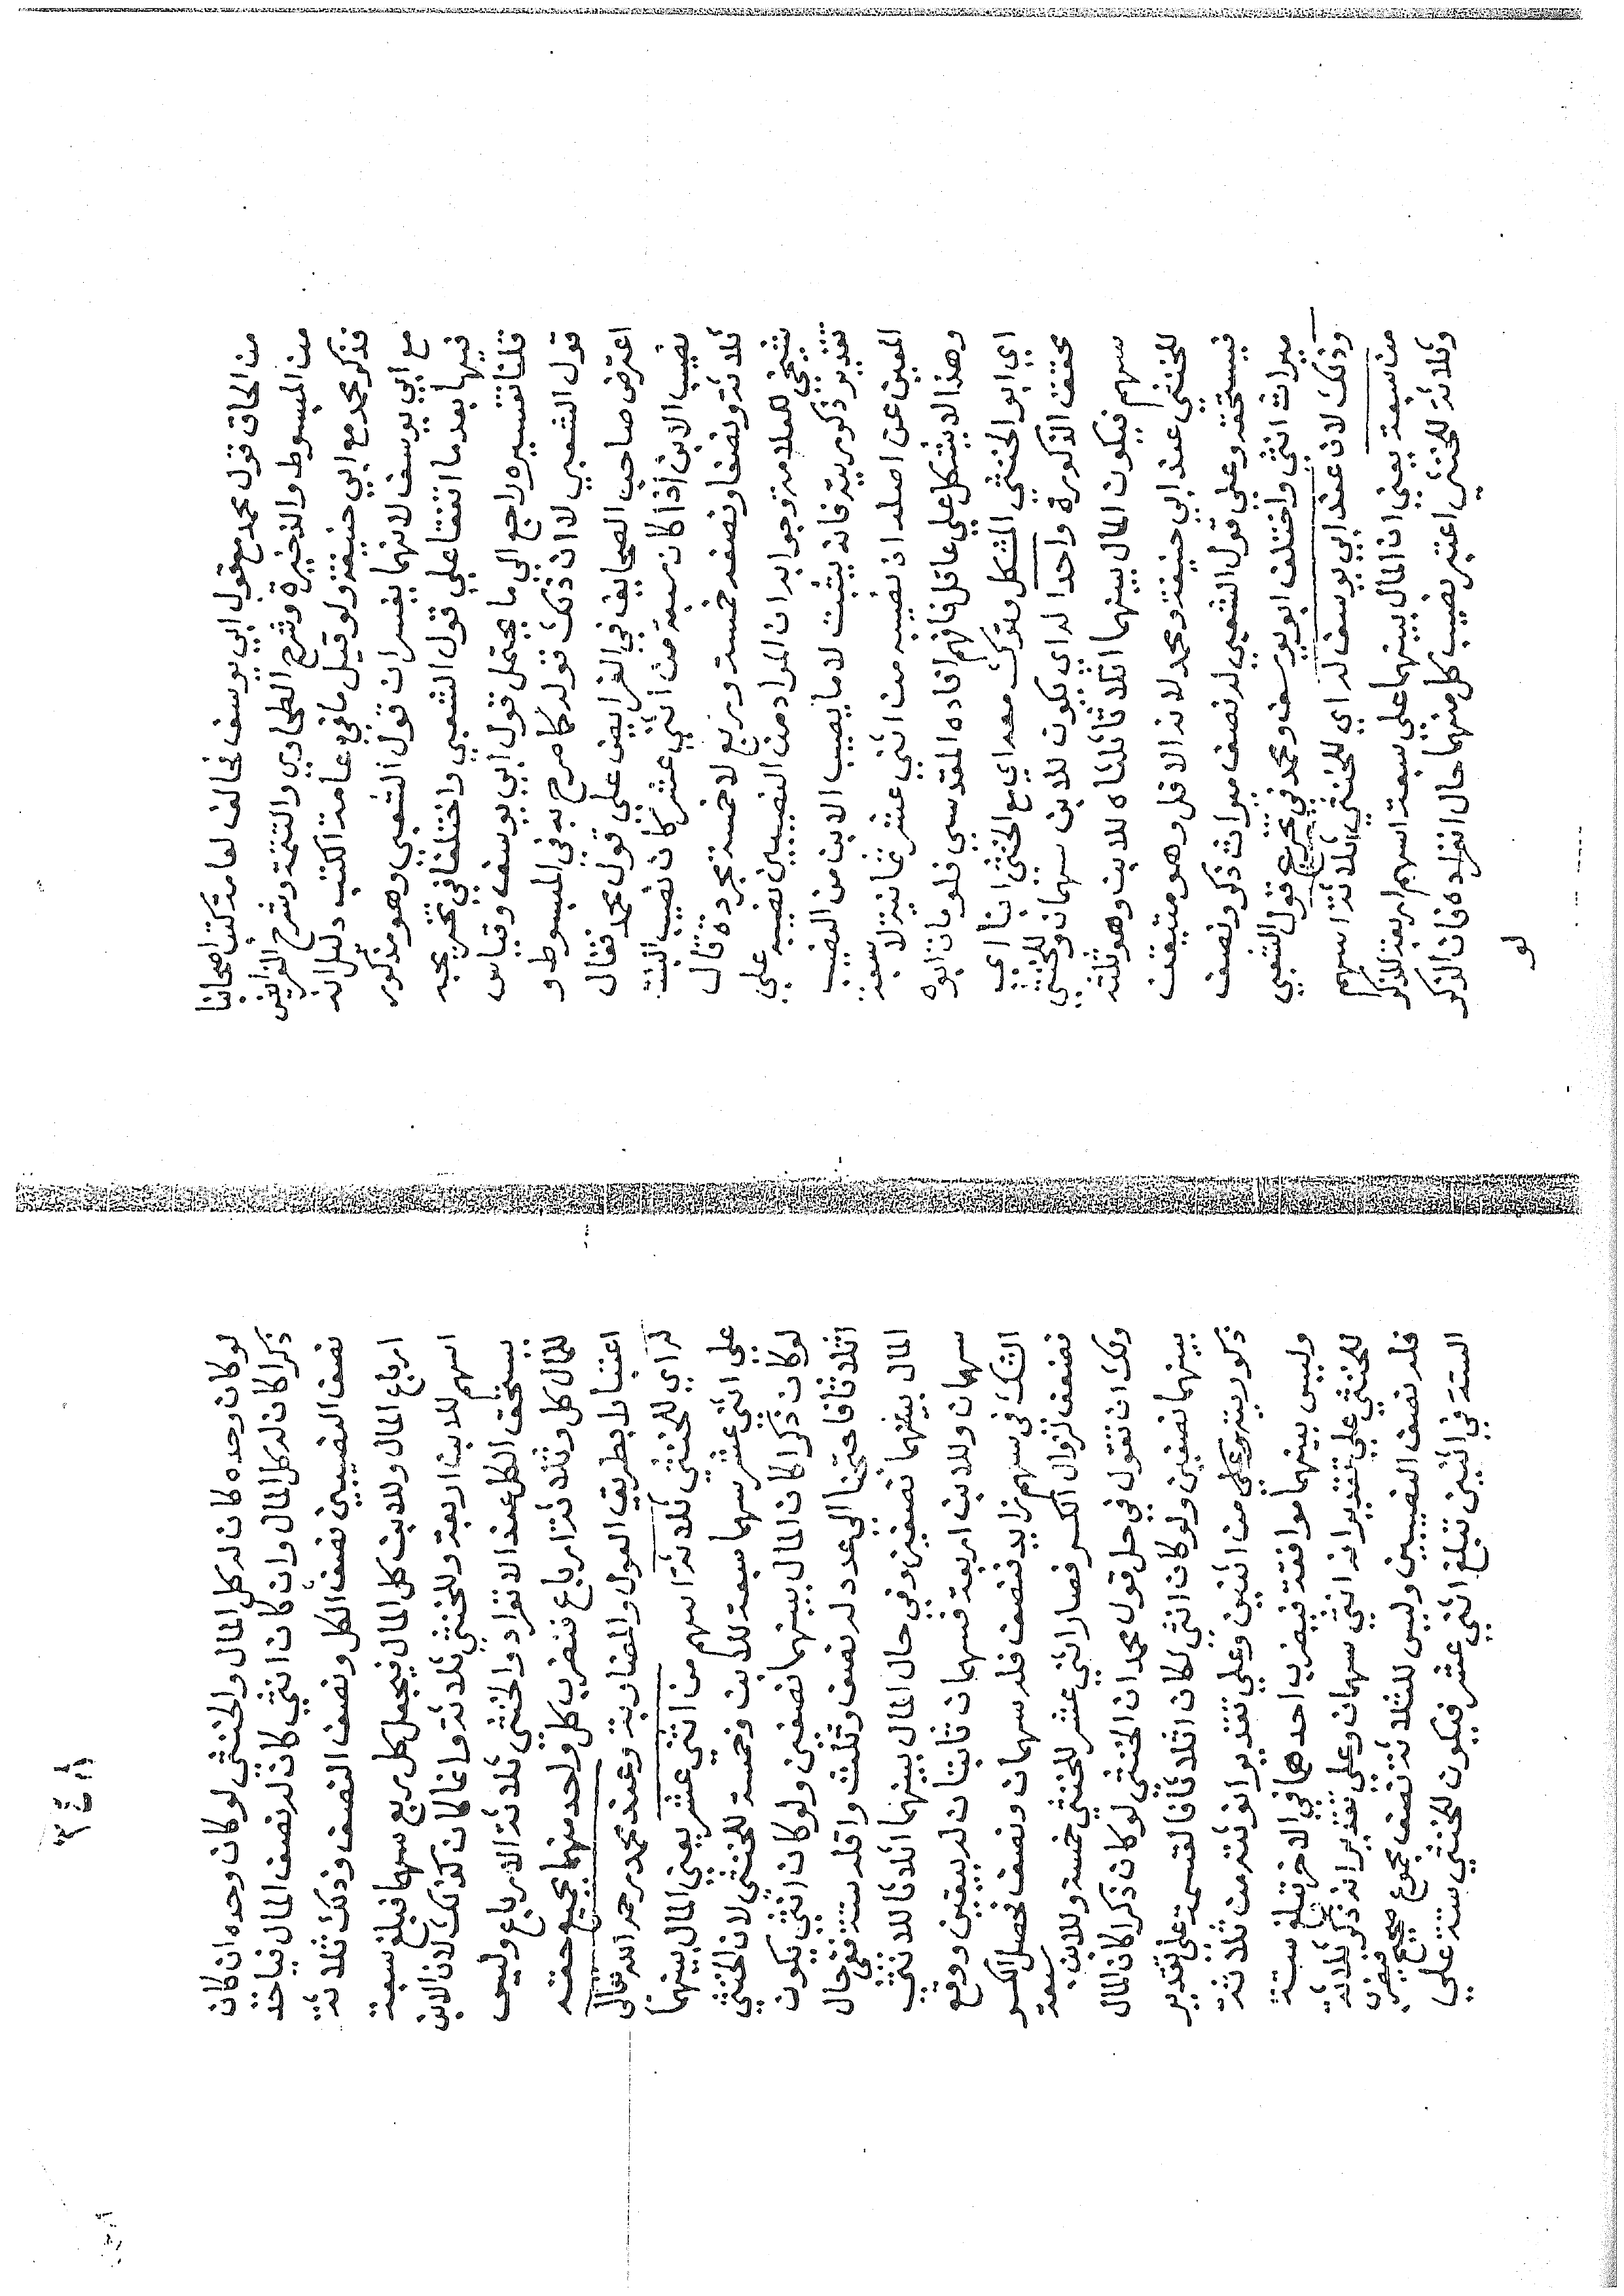 من الحاق قول محمد مع قول ابي يوسف فخالف لعامة كتب اصحابنا
من المبسوط والذخيرة وشرح الطحاوي والتتمة وشرح الفرايض
فذكر محمد مع ابي حنيفة ولو قيل ما في عامة الكتب دليل انه
مع ابي يوسف لانهما يفسران قول الشعبي وهو مذكور
فيها بعد ما اتفقا علي قول الشعبي واختلفا في تخريجه
قلنا تفسيره راجع الي ما يحتمل قول ابي يوسف وقياس
قول الشعبي لا ان ذلك قوله كما صرح به في المبسوط و
اعترض صاحب الصحايف في الفرايض علي قول محمد فقال
نصيب الابن اذا كان سبعة من اثني عشر كان نصيب البنت
ثلاثة ونصفا ونصفه خمسة وربع لا خمسة مجردة قال
شيخي العلامة وجوابه ان المراد من النصيبين نصيبه علي
تقدير ذكوريته فانه يثبت لا ما يصيب الابن من النصيب
المعين عن اصله اذ نصيبه من اثني عشر ثمانية لا سبعة
وهذا لا يشكل علي عاقل فافهم افاده المقدسي فلو مات ابوه
اي ابو الخنثي المشكل وترك معه اي مع الخنثي ابنا اي
محقق الذكورة واحدا له اي يكون للابن سهمان وللخنثي
سهم فيكون المال بينهما اثلاثا ثلثاه للابن وهو ثلثه
للخنثي عند ابي حنيفة ومحمد لانه الاقل وهو متيقن
فيستحقه وعلي قول الشعبي له نصف ميراث ذكر ونصف
ميراث انثي واختلف ابو يوسف ومحمد في تخريج قول الشعبي
وذلك لان عند ابي يوسف له اي للخنثي ثلاثة اسهم
من سبعة يعني ان المال بينهما علي سبعة اسهم اربعة للذكر
وثلاثة للخنثي اعتبر نصيب كل منهما حال انفراده فان الذكر
لو
٣٤٨
لو كان وحده كان له كل المال والخنثي لو كان وحده ان كان
ذكرا كان له كل المال وان كان انثي كان له نصف المال فياخذ
نصف النصيبين نصف الكل ونصف النصف وذلك ثلاثة
ارباع المال وللابن كل المال فيجعل كل ربع سهما فبلغ سبعة
اسهم للابن اربعة وللخنثي ثلاثة وانما كان كذلك لان الابن
يستحق الكل عند الانفراد والخنثي ثلاثة الارباع وليس
للمال كل وثلاثة ارباع فنضرب كل واحد منهما بجميع حقه
اعتبارا بطريق العول والمضاربة وعند محمد رحمه الله تعالي
له اي للخنثي ثلاثة اسهم من اثني عشر يعني المال بينهما
علي اثني عشر سهما سبعة للابن وخمسة للخنثي لان الخنثي
لو كان ذكرا كان المال بينهما نصفين ولو كان انثي يكون
اثلاثا فاحتجنا الي عدد له نصف وثلث واقله ستة ففي حال
المال بينهما نصفين وفي حال المال بينهما اثلاثا للانثي
سهمان وللابن اربعة فسهمان ثابتان له بيقين ووقع
الشك في سهم زايد فنصف فله سهمان ونصف فحصل الكسر
فضعف لزوال الكسر فصار اثني عشر للخنثي خمسة وللابن سبعة
ولك ان تقول في حل قول محمد ان الخنثي لو كان ذكرا كان المال
بينهما نصفين ولو كان انثي لكان اثلاثا فالقسمة علي تقدير
ذكوريته علي من اثنين وعلي تقدير انوثته من ثلاثة
وليس بينهما موافقة فيضرب احدهما في الاخر تبلغ ستة
للخنثي علي تقدير انه انثي سهمان وعلي تقدير انه ذكر ثلاثة
فله نصف النصيبين وليس للثلاثة نصف مجموع صحيح فيضرب
الستة في اثنين تبلغ اثني عشر فيكون للخنثي ستة علي